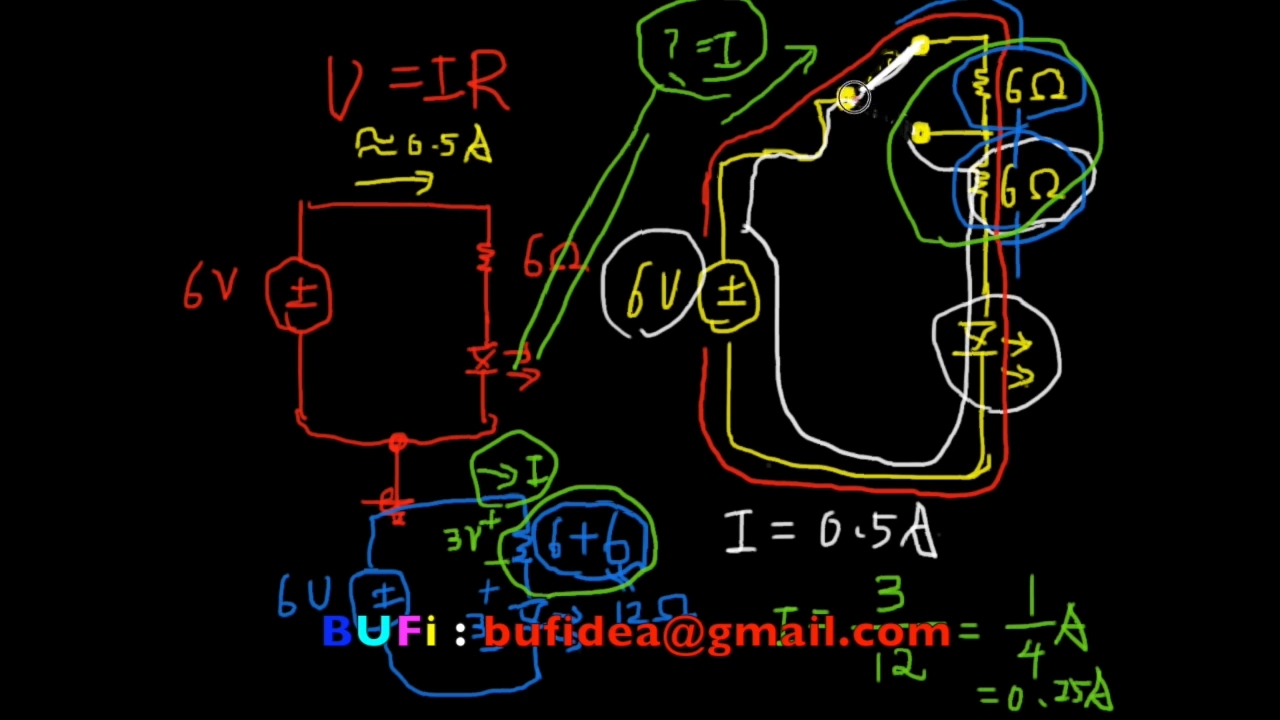 V = IR
≈0.5A
6V
±
6Ω
? = I
6Ω
6Ω
6V
±
→ I
3V
+
−
6+6
12Ω
6V
±
+
3
I = 0.5A
I = 3/12 = 1/4 A
= 0.25A
BUFi : bufidea@gmail.com